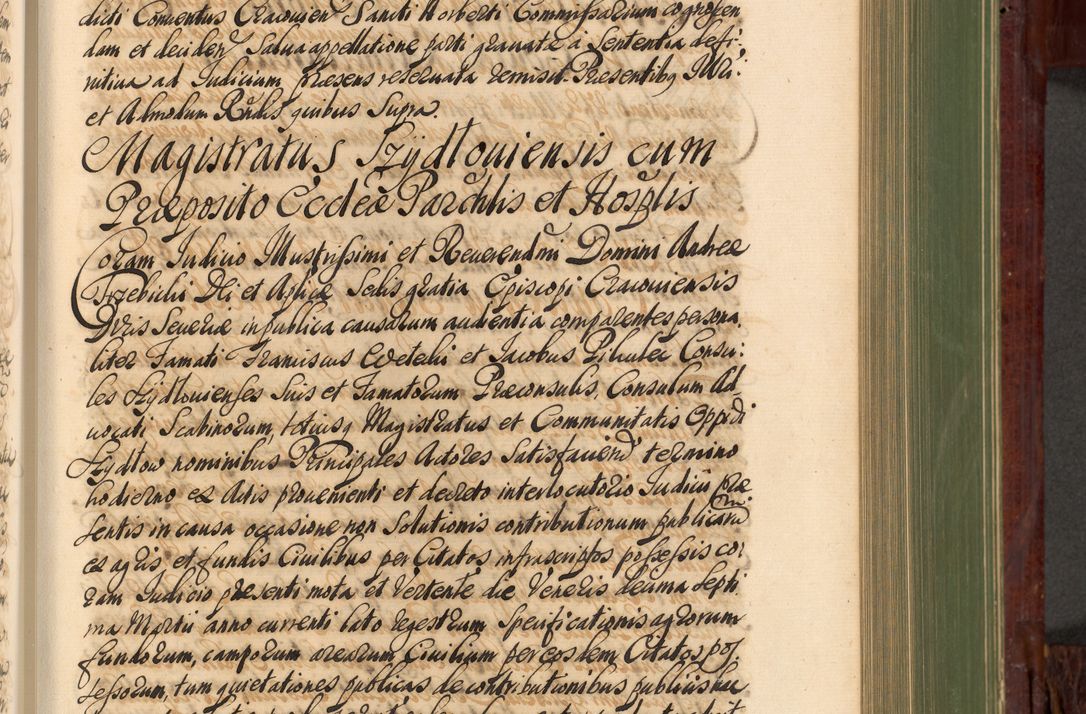 dicti Conventus Cracovien Sancti Norberti Commissarium cognoscen
dam et deciden Salva appellatione parti gravatæ à Sententia defi:
nitiva ad Iudicium præsens reservata remisit. Præsentibg
et Admodum Rndis quibus Supra.
Magistratus Szÿdloviensis cum
Præposito Ecclæ Parchlis et Hosplis
Coram Iudicio Illustrissimi et Reverendmi Domini Andreæ
Trzebicki Dei et Aplicæ Sedis gratia Episcopi Cracoviensis
Ducis Severiæ in publica causarum audientia comparentes persona:
liter Famati Franciscus et Iacobus Consu:
les Szÿdlovienses Suis et Famatorum Præconsulis, Consulum Ad
vocati Scabinorum, totiusq Magistratus et Communitatis Oppidi
Szÿdlow nominibus Principales Actores Satisfaciend termino
hodierno ex Actis provenienti et decreto interlocutorio Iudicii præ
sentis in causa occasione non Solutionis contributionum publicarum
ex agris, et fundis Civilibus per Citatos infrascriptos possessis co:
ram Iudicio præsenti mota et Vertente die Veneris decima Septi
ma Martii anno currenti lato regestrum Specificationis agrorum
fundorum, camporum arearum Civilium per eosdem Citatos pos
sessorum, tum quietationes publicas de contributionibus publicis